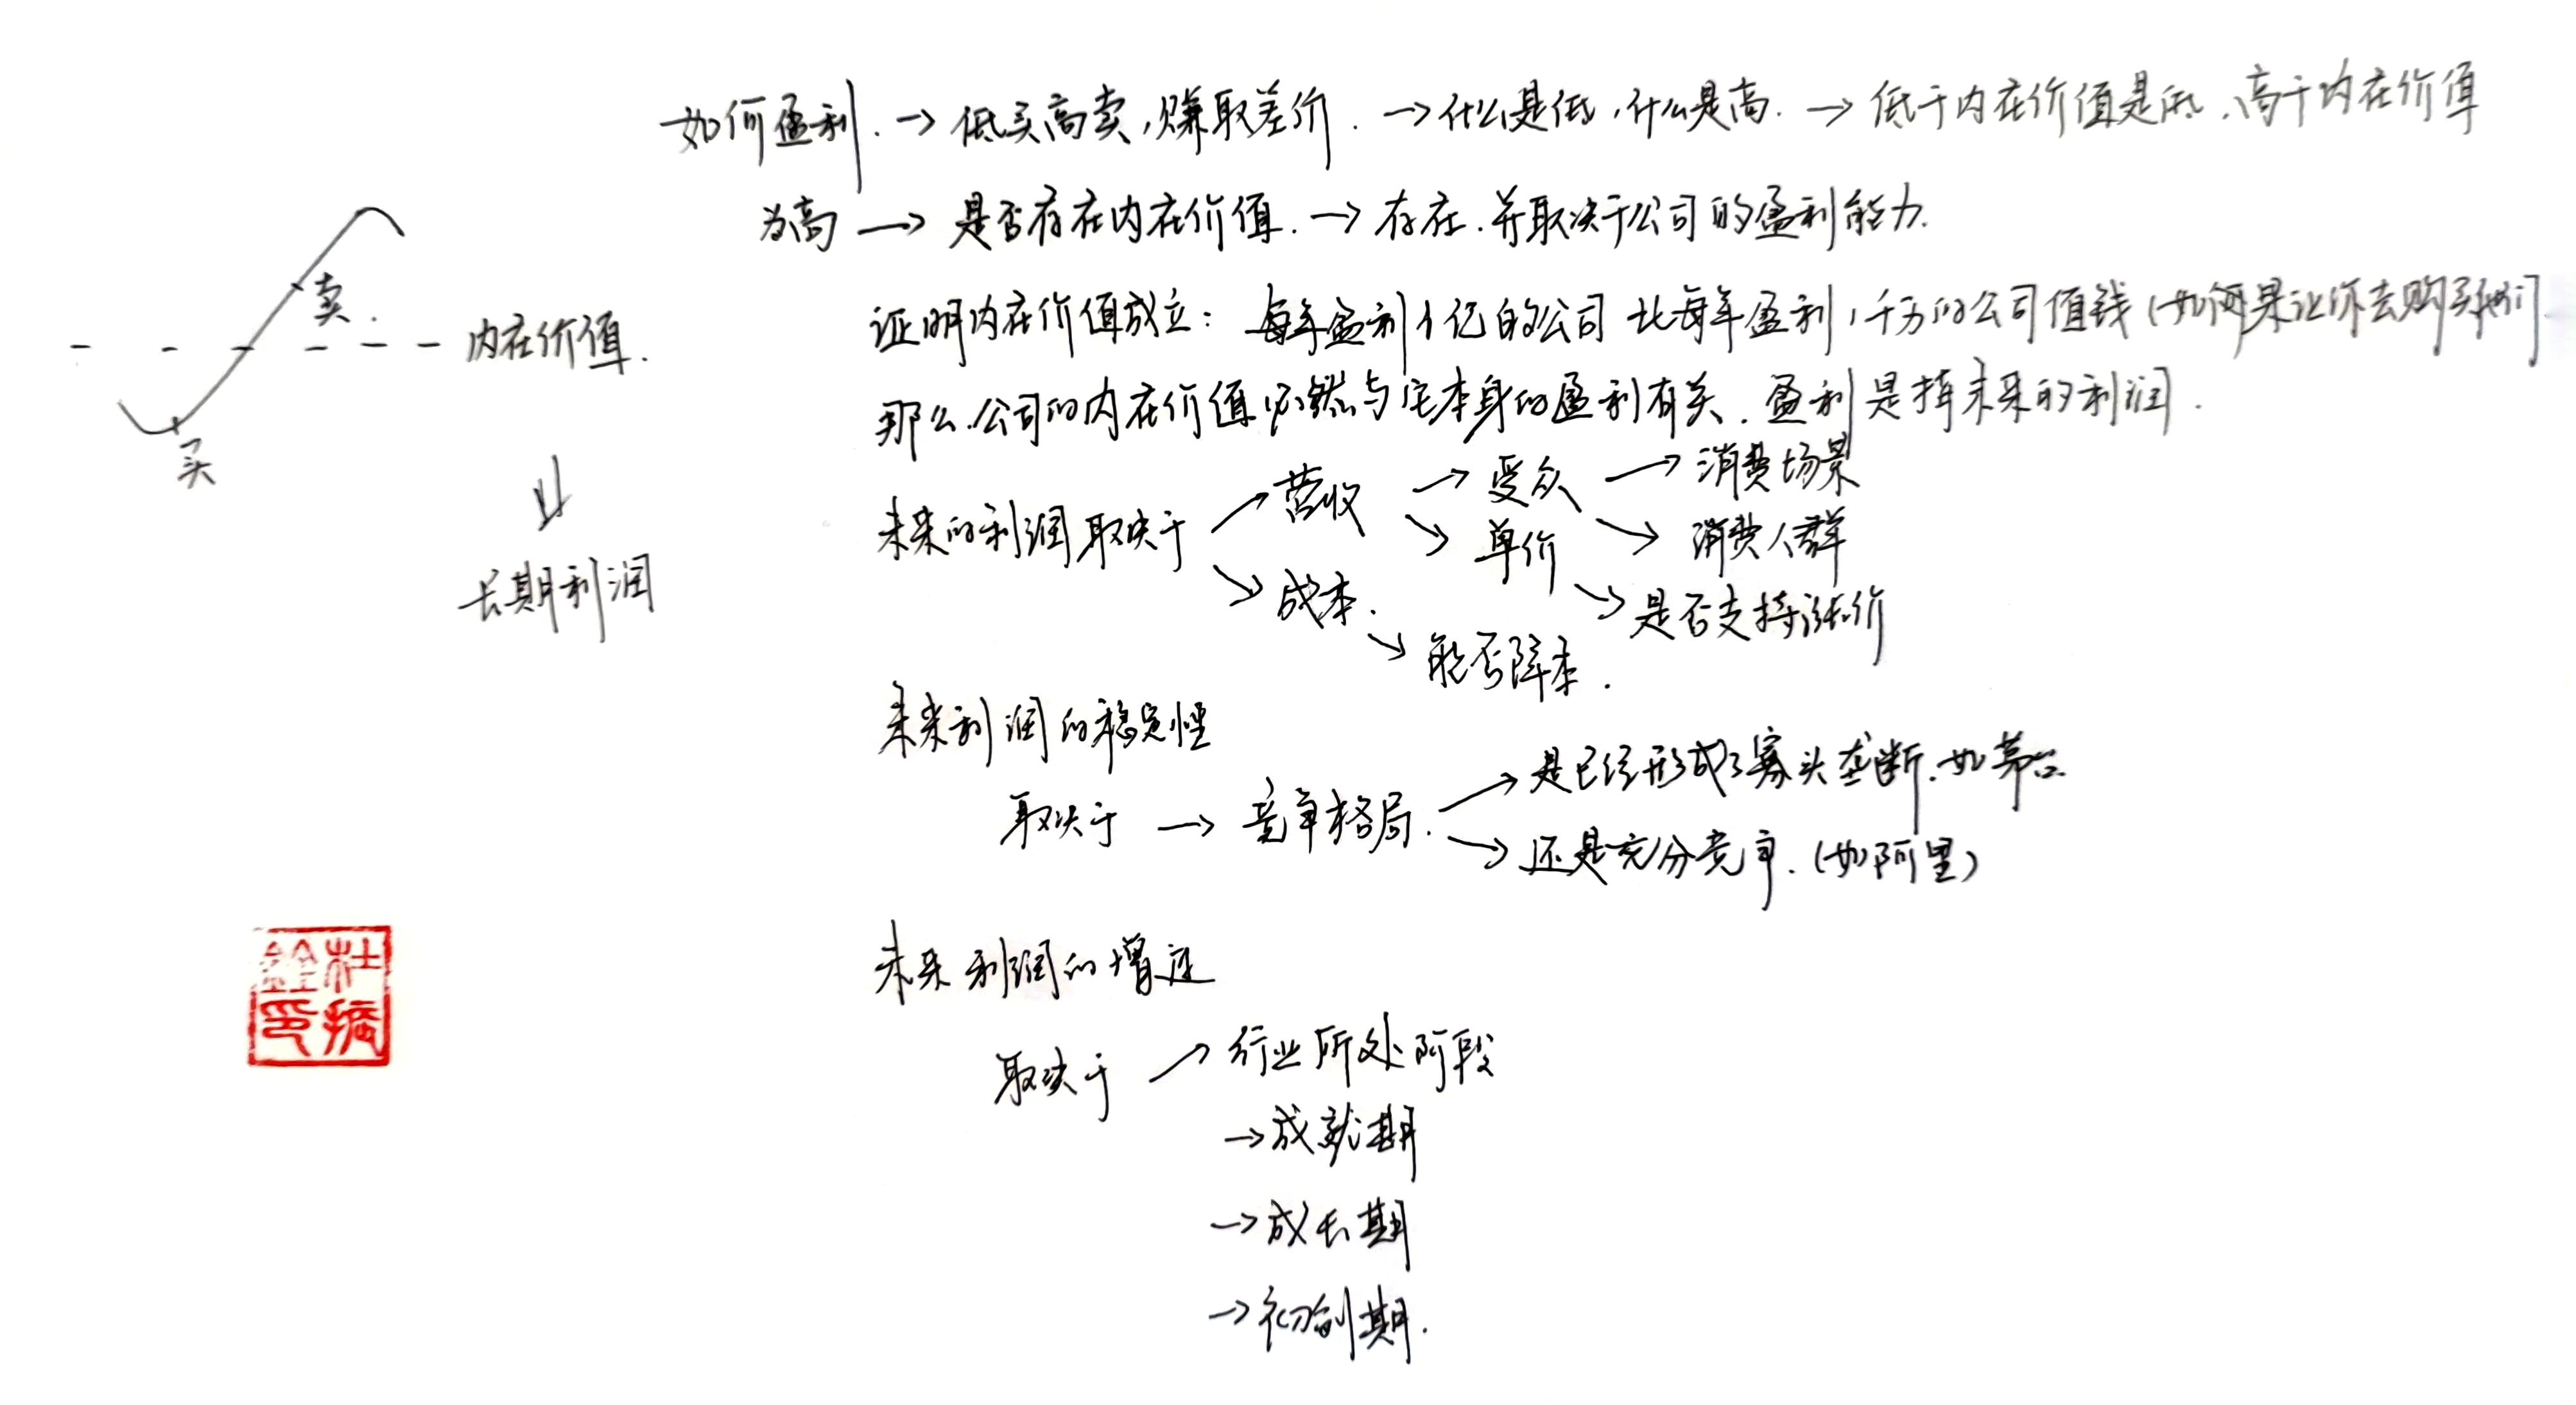 如何盈利. → 低买高卖,赚取差价. → 什么是低,什么是高. → 低于内在价值是低,高于内在价值
为高 → 是否存在内在价值. → 存在.并取决于公司的盈利能力.
卖.
内在价值.
买
长期利润
证明内在价值成立: 每年盈利1亿的公司 比每年盈利1千万的公司值钱(如果让你去购买他们)
那么.公司的内在价值必然与它本身的盈利有关.盈利是指未来的利润.
未来的利润取决于 → 营收 → 受众 → 消费场景
→ 消费人群
→ 单价 → 是否支持涨价
→ 成本. → 能否降本.
未来利润的稳定性
取决于 → 竞争格局. → 是已经形成了寡头垄断.如茅台
→ 还是充分竞争.(如阿里)
未来利润的增速
取决于 → 行业所处阶段
→ 成就期
→ 成长期
→ 初创期.
杜
印